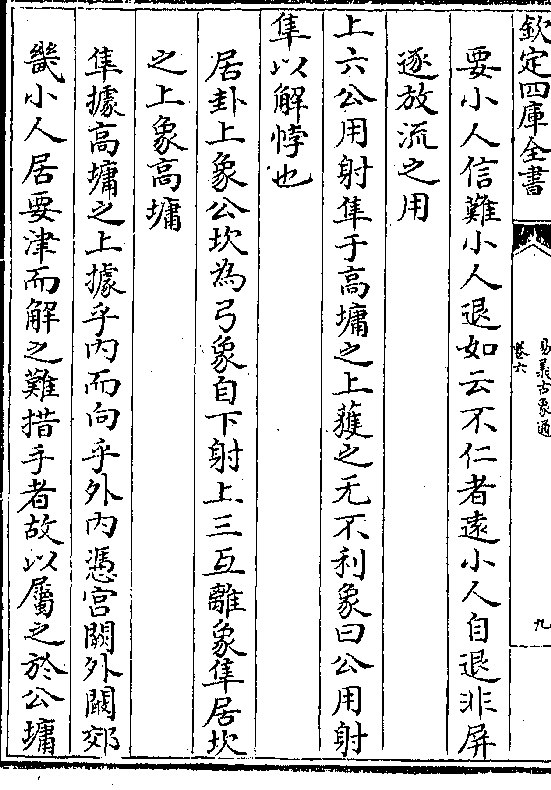 欽定四庫全書
易義古象通
卷六
九
要小人信難小人退如云不仁者遠小人自退非屏
逐放流之用
上六公用射隼于高墉之上獲之无不利象曰公用射
隼以解悖也
居卦上象公坎為弓象自下射上三互離象隼居坎
之上象高墉
隼據高墉之上據乎内而向乎外内憑宫闕外闞郊
畿小人居要津而解之難措手者故以屬之於公墉